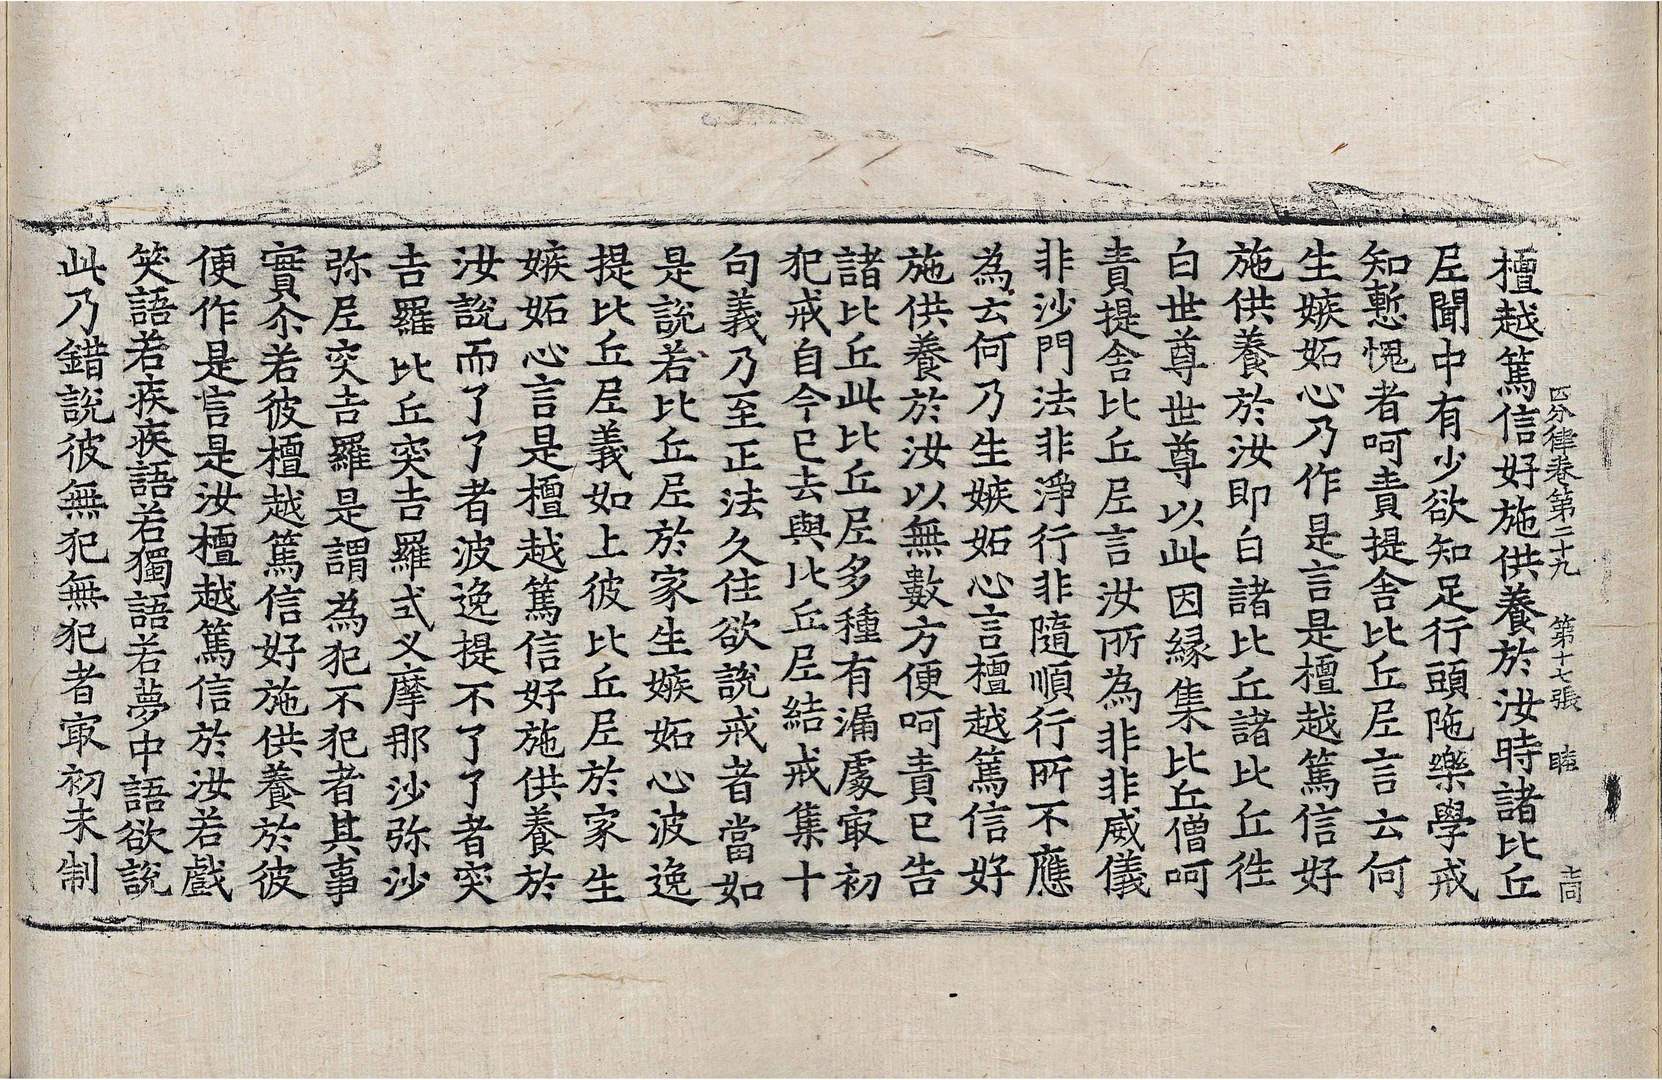 四分律卷第二十九 第十七張 睦
檀越篤信好施供養於汝時諸比丘
尼聞中有少欲知足行頭陁樂學戒
知慙愧者呵責提舍比丘尼言云何
生嫉妬心乃作是言是檀越篤信好
施供養於汝即白諸比丘諸比丘徃
白世尊世尊以此因縁集比丘僧呵
責提舍比丘尼言汝所為非非威儀
非沙門法非淨行非隨順行所不應
為云何乃生嫉妬心言檀越篤信好
施供養於汝以無數方便呵責已告
諸比丘此比丘尼多種有漏處㝡初
犯戒自今已去與比丘尼結戒集十
句義乃至正法久住欲說戒者當如
是說若比丘尼於家生嫉妬心波逸
提比丘尼義如上彼比丘尼於家生
嫉妬心言是檀越篤信好施供養於
汝說而了了者波逸提不了了者突
吉羅比丘突吉羅式叉摩那沙弥沙
弥尼突吉羅是謂為犯不犯者其事
實尒若彼檀越篤信好施供養於彼
便作是言是汝檀越篤信於汝若戲
笑語若疾疾語若獨語若夢中語欲說
此乃錯說彼無犯無犯者㝡初未制